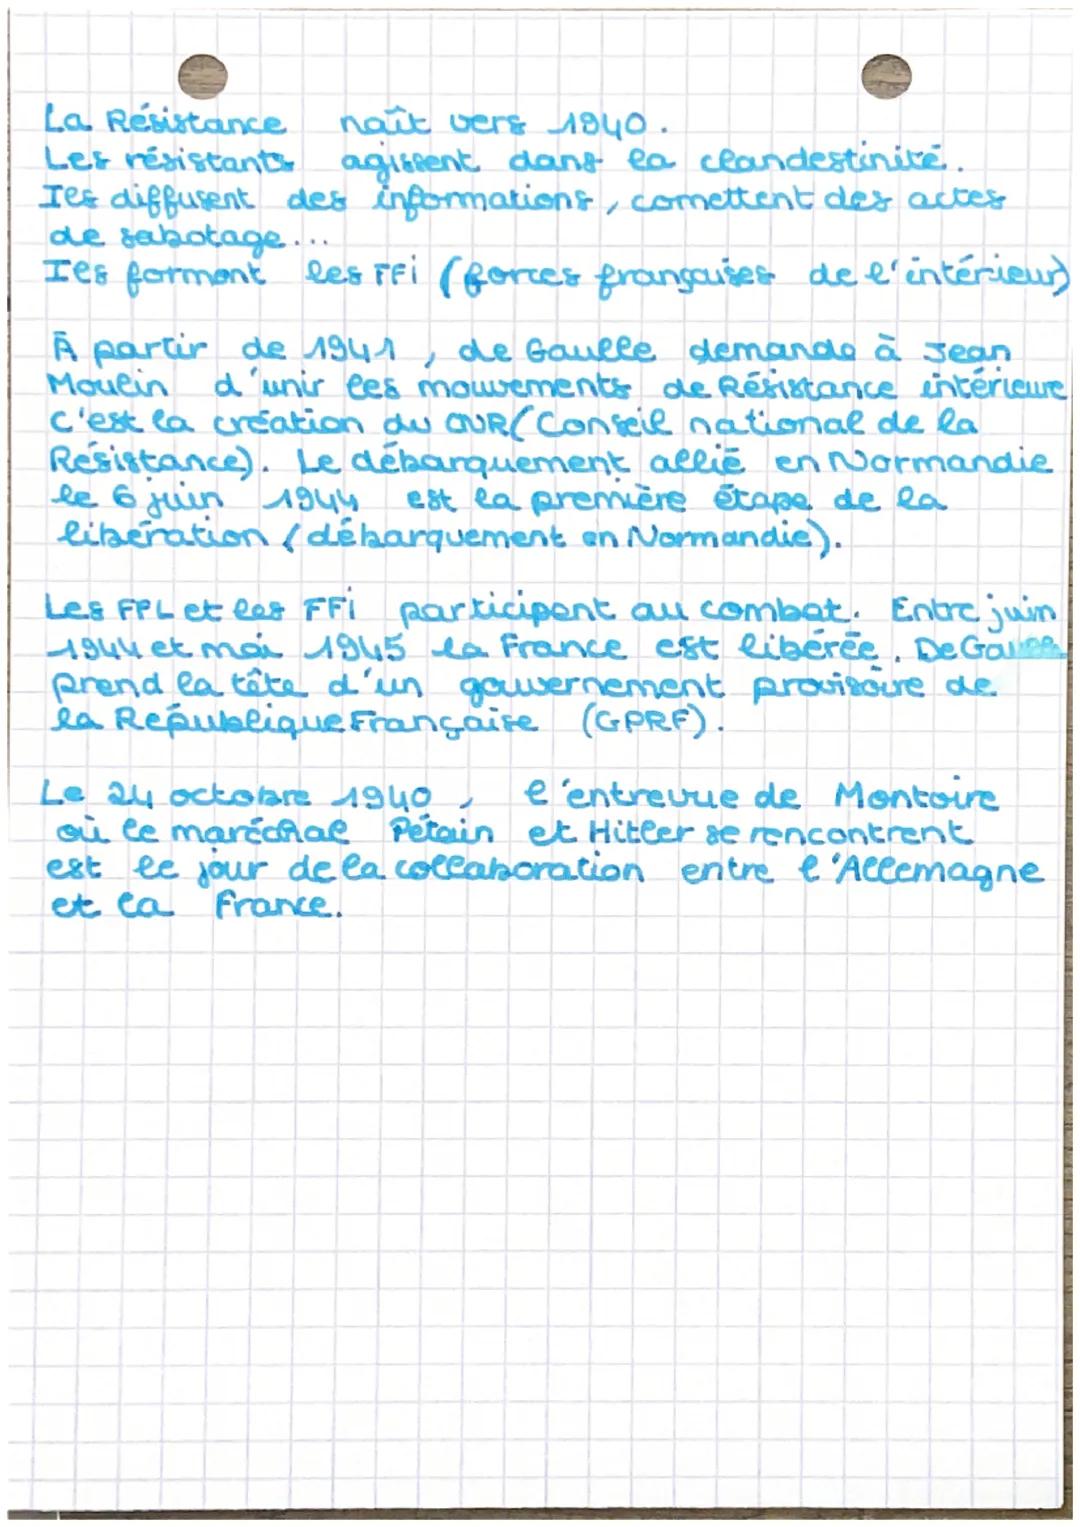 La Résistance naît vers 1940.
Les résistants agissent dans la clandestinité.
Ils diffusent des informations, comettent des actes
de sabotage...
Ils forment les FFi (forces françaises de l'intérieur)
À partir de 1941, de Gaulle demande à Jean
Moulin d'unir les mouvements de Résistance intérieure
C'est la création du CNR (Conseil national de la
Résistance). Le débarquement allié en Normandie
le 6 juin 1944 est la première étape de la
libération (débarquement en Normandie).
Les FPL et les FFi participent au combat. Entre juin
1944 et mai 1945 la France est libérée. De Gaulle
prend la tête d'un gouvernement provisoire de
la République Française (GPRF).
Le 24 octobre 1940, l'entrevue de Montoire
où le maréchal Pétain et Hitler se rencontrent
est le jour de la collaboration entre l'Allemagne
et la France.